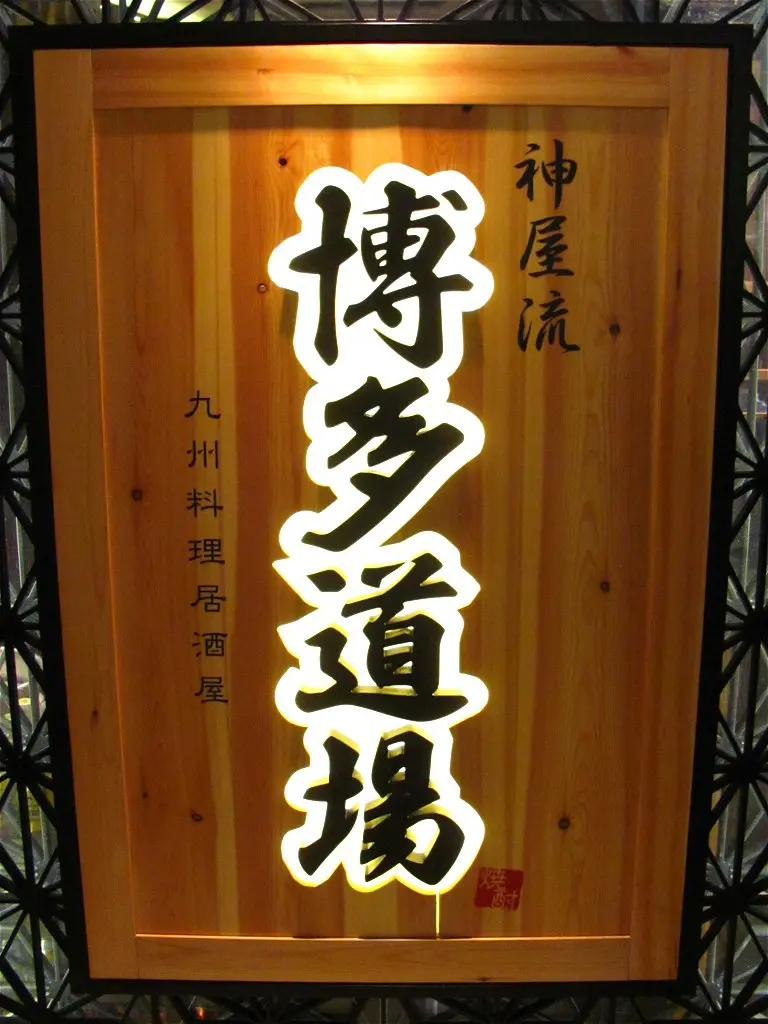 神屋流
博多道場
九州料理居酒屋
焼酎